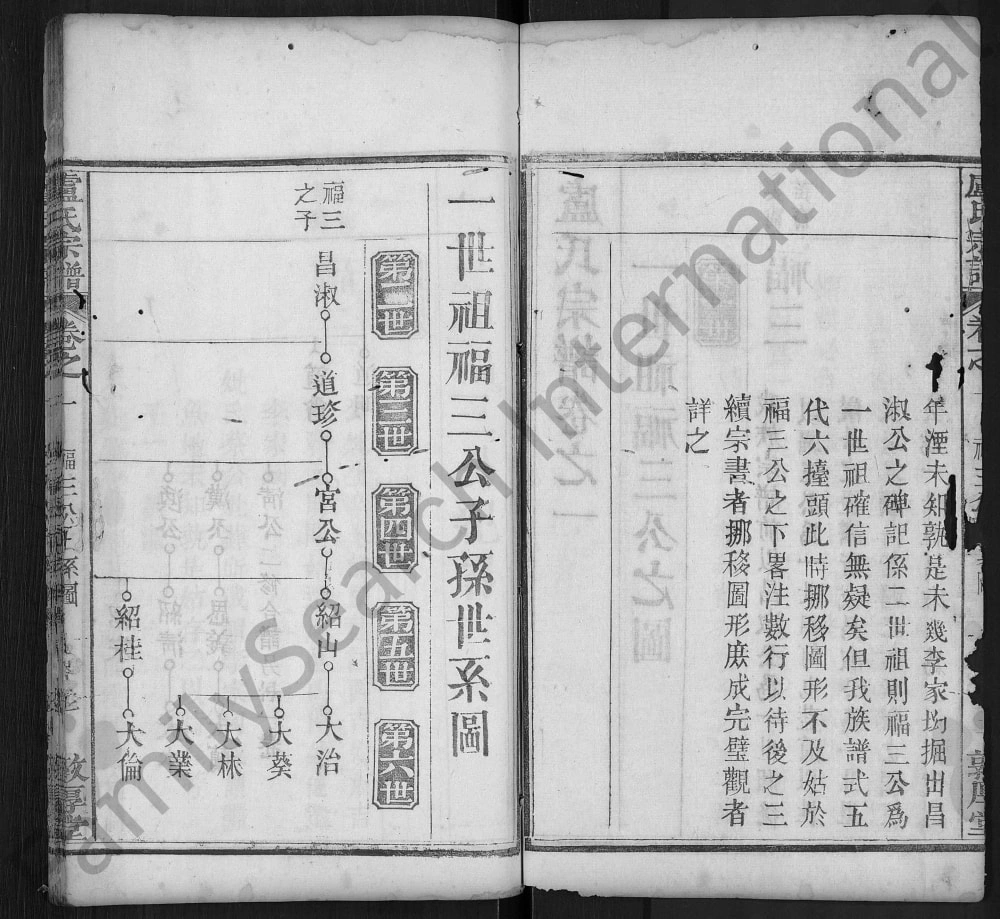 盧氏宗譜
年湮未知孰是未幾李家坳掘出昌
淑公之碑記係二世祖則福三公爲
一世祖確信無疑矣但我族譜式五
代六擡頭此時挪移圖形不及姑於
福三公之下畧注數行以待後之三
續宗書者挪移圖形庶成完璧觀者
詳之
敦厚堂
一世祖福三公子孫世系圖
第二世 第三世 第四世 第五世 第六世
福三之子
昌淑 道珍 宮公 紹山 大治
大葵
大林
大業
紹桂 大倫
盧氏宗譜 卷之一 福三公子孫圖 敦厚堂
FamilySearch International